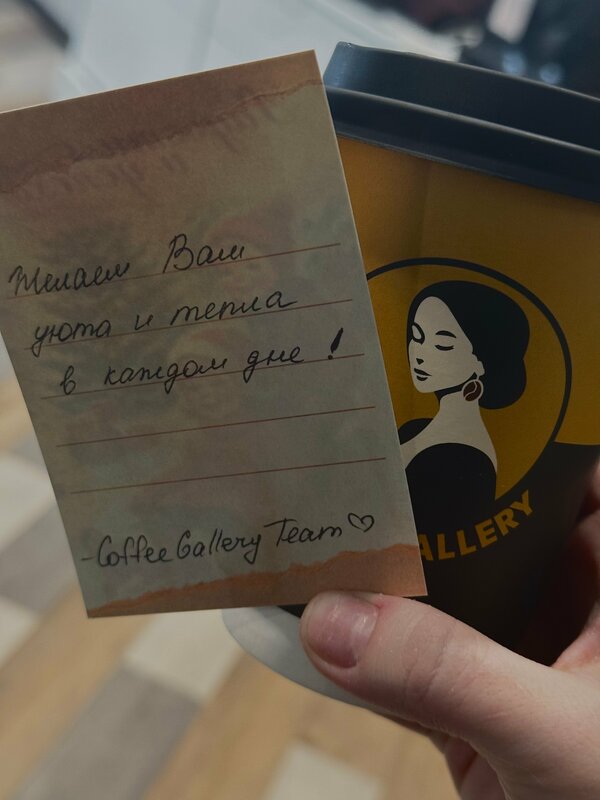 Желаем Вам
уюта и тепла
в каждом дне!
-Coffee Gallery Team♡
ALLERY